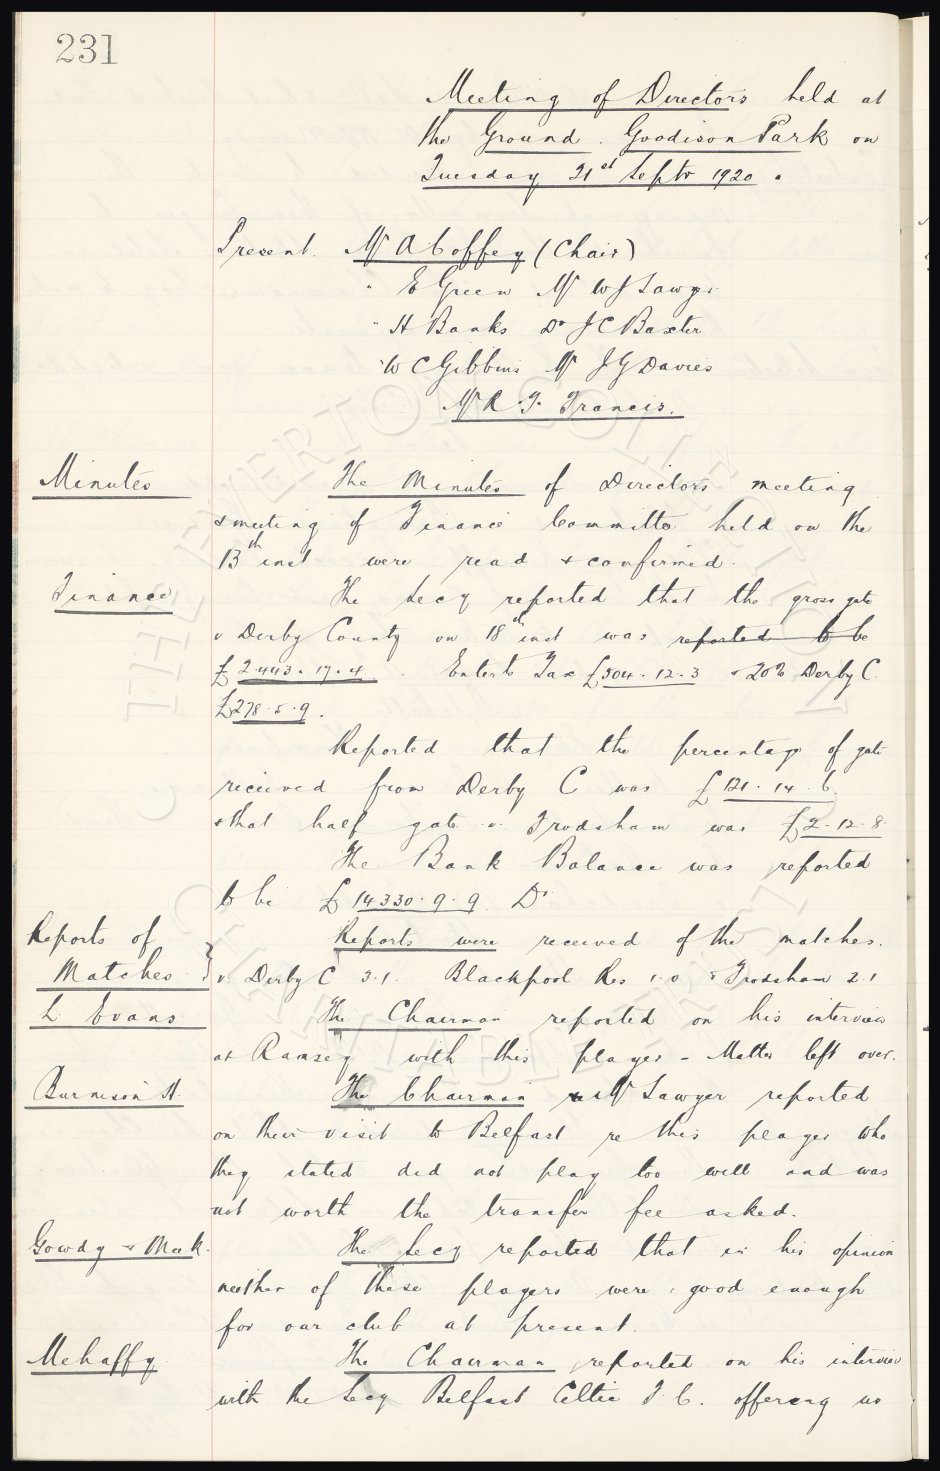 231
Meeting of Directors held at
the Ground Goodison Park on
Tuesday 21st Septr 1920.
Present. Mr A Coffey (Chair)
" E Green Mr W J Sawyer
" H Banks Dr J C Baxter
" W C Gibbins Mr J G Davies
Mr R. F. Francis.
Minutes The Minutes of Directors meeting
& meeting of Finance Committee held on the
13th inst were read & confirmed.
Finance The Secy reported that the gross gate
v Derby County on 18th inst was reported to be
£2443.17.4. Entert Tax £504.12.3 & 20% Derby C.
£278.5.9.
Reported that the percentage of gate
received from Derby C was £121.14.6
& that half gate v. Frodsham was £2.12.8
The Bank Balance was reported
to be £14330.9.9. Dr
Reports of Reports were received of the matches.
Matches } v Derby C 3.1. Blackpool Res 1.0 & Frodsham 2.1
L Evans The Chairman reported on his interview
at Ramsey with this player - Matter left over.
Burnison H. The Chairman & Mr Sawyer reported
on their visit to Belfast re this player who
they stated did not play too well and was
not worth the transfer fee asked.
Gowdy & Meek. The Secy reported that in his opinion
neither of these players were good enough
for our club at present.
Mehaffy The Chairman reported on his interview
with the Secy Belfast Celtic F.C. offering no
THE EVERTON COLLECTION
CHARITABLE TRUST